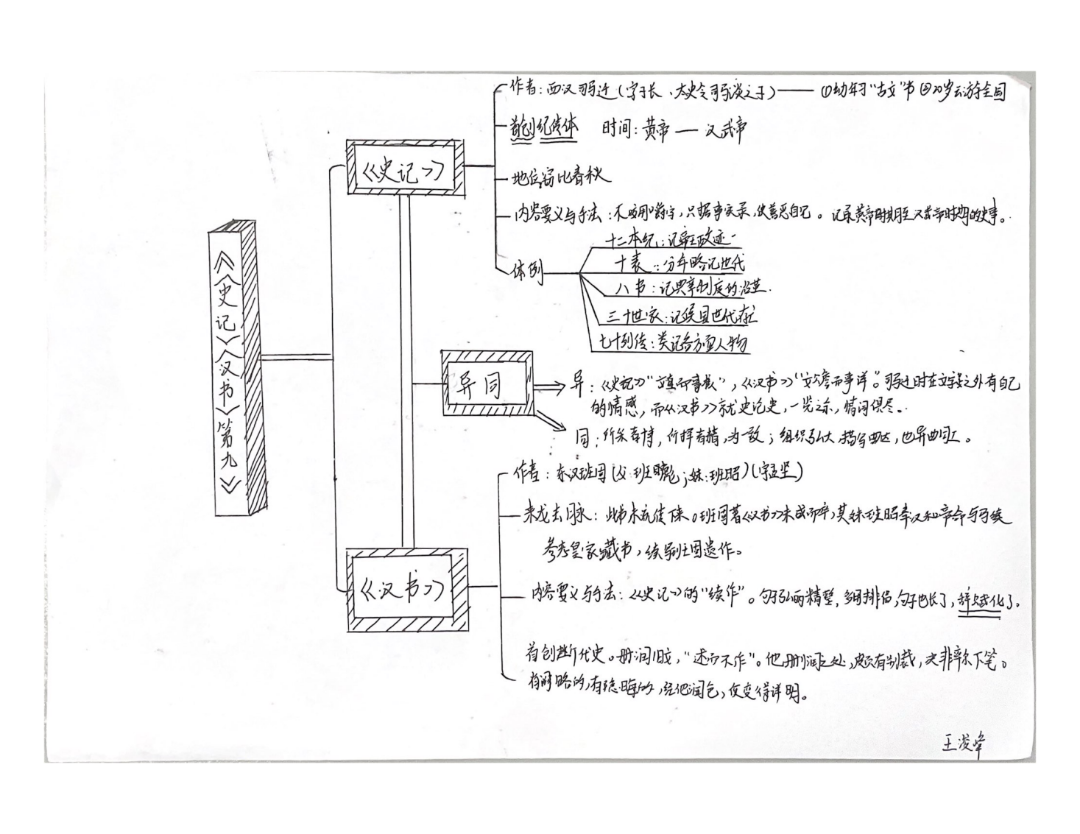 《《史记》《汉书》第九》
《史记》
作者：西汉司马迁（字子长、太史令司马谈之子）——①幼年习“古文”书②20岁云游全国
首创纪传体 时间：黄帝——汉武帝
地位：窃比春秋
内容要义与手法：不必用字，只据事实录，使善恶自已。记录黄帝时期至汉武帝时期的史事。
体例
十二本纪：记帝王政迹
十表：分年略记世代
八书：记典章制度的沿革.
三十世家：记侯国世代存亡
七十列传：类记各方面人物
异同
异：《史记》“文直而事核”，《汉书》“文赡而事详”。司马迁时在文字之外有自己
的情感，而《汉书》就史论史，一览之余，情词俱尽。
同：所矣，为一致；组织，也异曲同工。
《汉书》
作者：东汉班固（父：班彪；妹：班昭）（字孟坚）
来龙去脉：。班固著《汉书》未成而卒，其妹班昭奉汉和帝命与马续
参考皇家藏书，续写班固遗作。
内容要义与手法：《史记》的“续作”。句子弘丽精整，多用排偶，句子也长了，辞赋化了。
首创断代史。删润旧文，“述而不作”。他删润之处，颇有别裁，决非率尔下笔。
有阔略的，有隐晦的，经他润色，便变得详明。
王浚峰